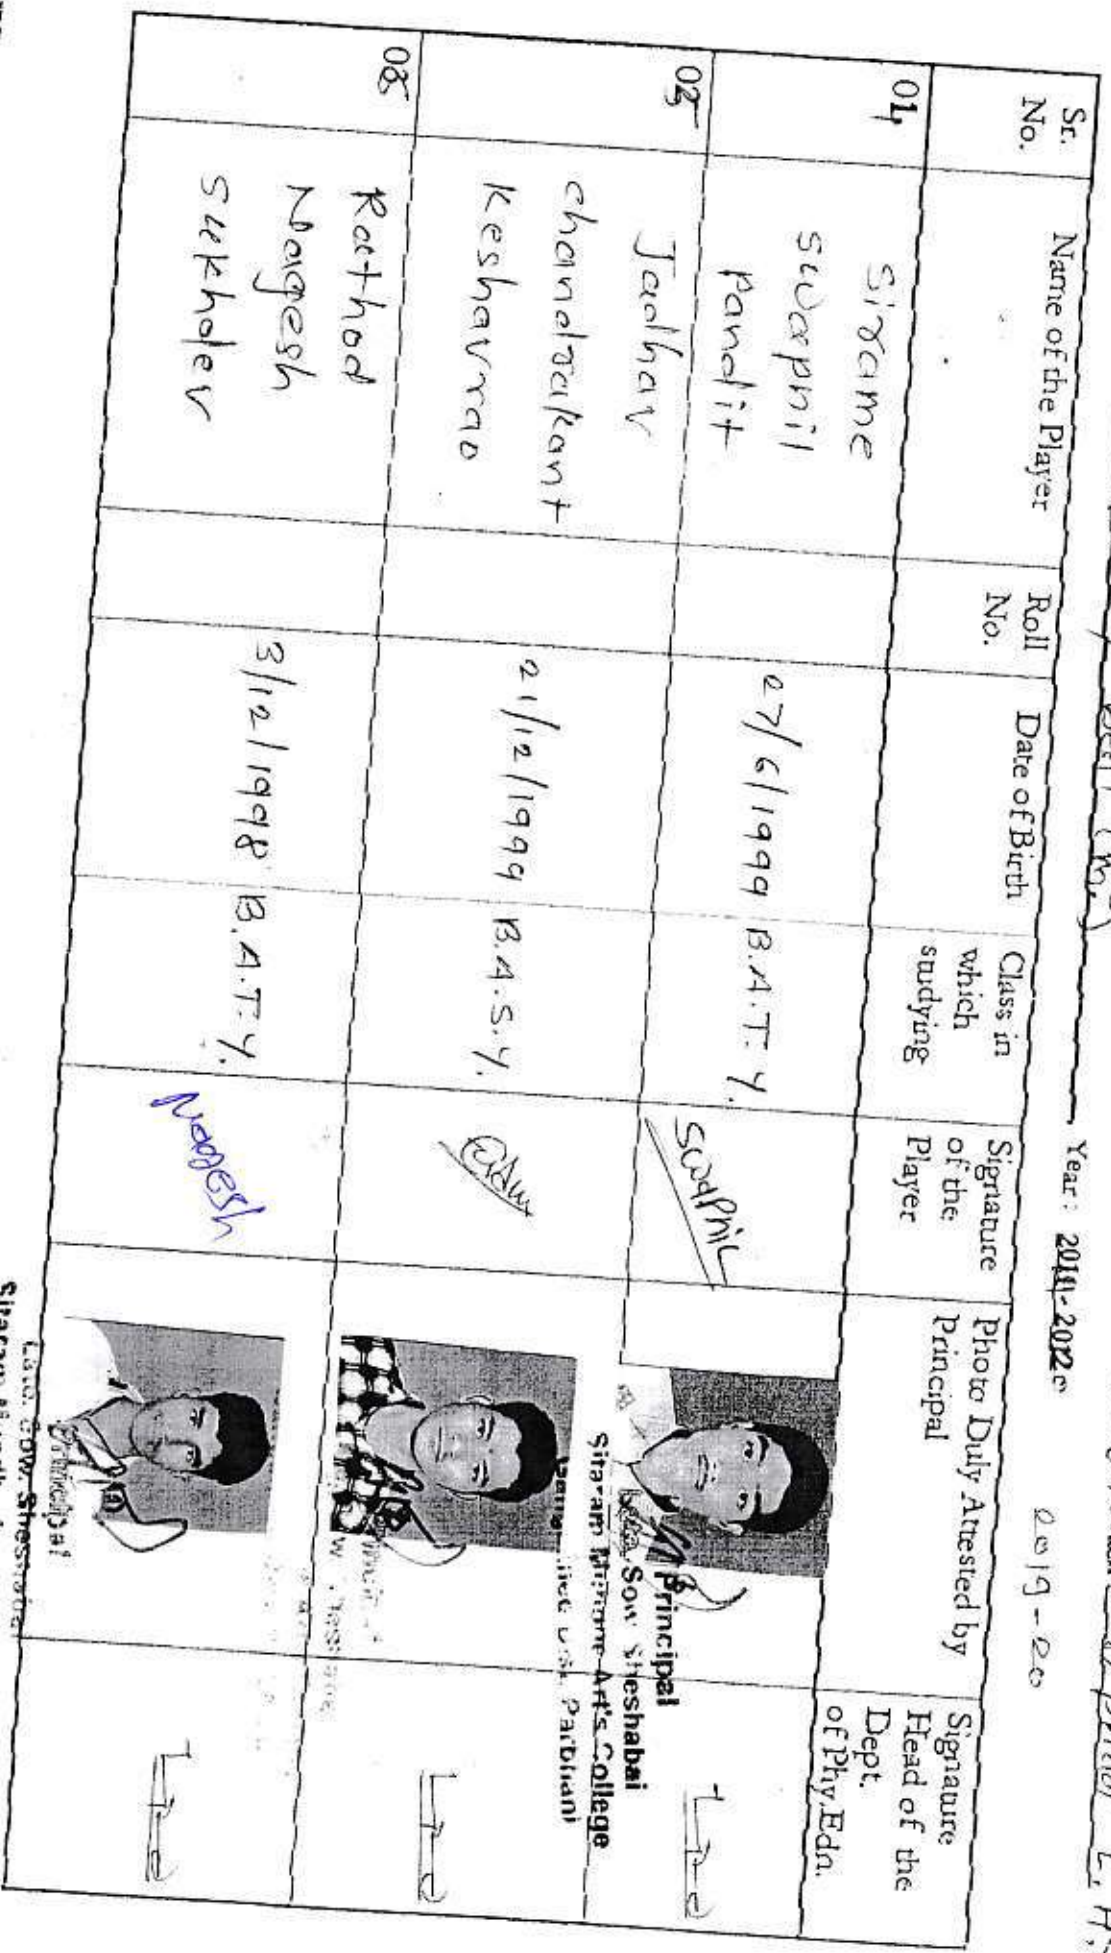 Year : 2011-2012 2019-20
Sr. No.
Name of the Player
Roll No.
Date of Birth
Class in which studying
Signature of the Player
Photo Duly Attested by Principal
Signature Head of the Dept. of Phy.Edn.
01,
Sirame
Swapnil
Pandit
27/6/1999
B.A.T.Y.
Swapnil
Principal
Sow Sheshabai
Sitaram Art's College
Parbhani
02
Jadhav
Chandrakant
Keshavrao
21/12/1999
B.A.S.Y.
03
Rathod
Nagesh
Sukhdev
3/12/1998
B.A.T.Y.
Nagesh
Principal
Late. Sow. Sheshabai
Sitaram